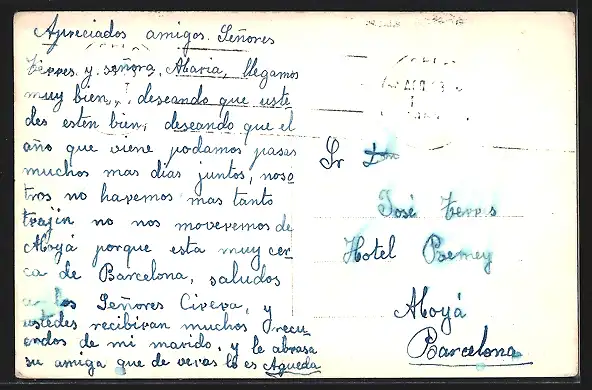 Apreciados amigos. Señores
Terres y señora, Maria, llegamos
muy bien, deseando que uste
des esten bien, deseando que el
año que viene podamos pasar
muchos mas dias juntos, noso
tros no haremos mas tanto
trajin no nos moveremos de
Moyá porque esta muy cer
ca de Barcelona, saludos
a los Señores Civera, y
ustedes reciviran muchos recu
erdos de mi marido. y le abrasa
su amiga que de veras lo es Agueda
Sr
José Terres
Hotel Remey
Moyá
Barcelona